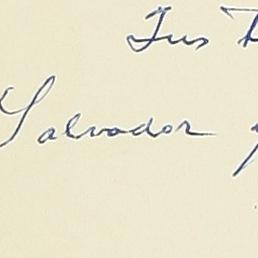 Tus
Salvador